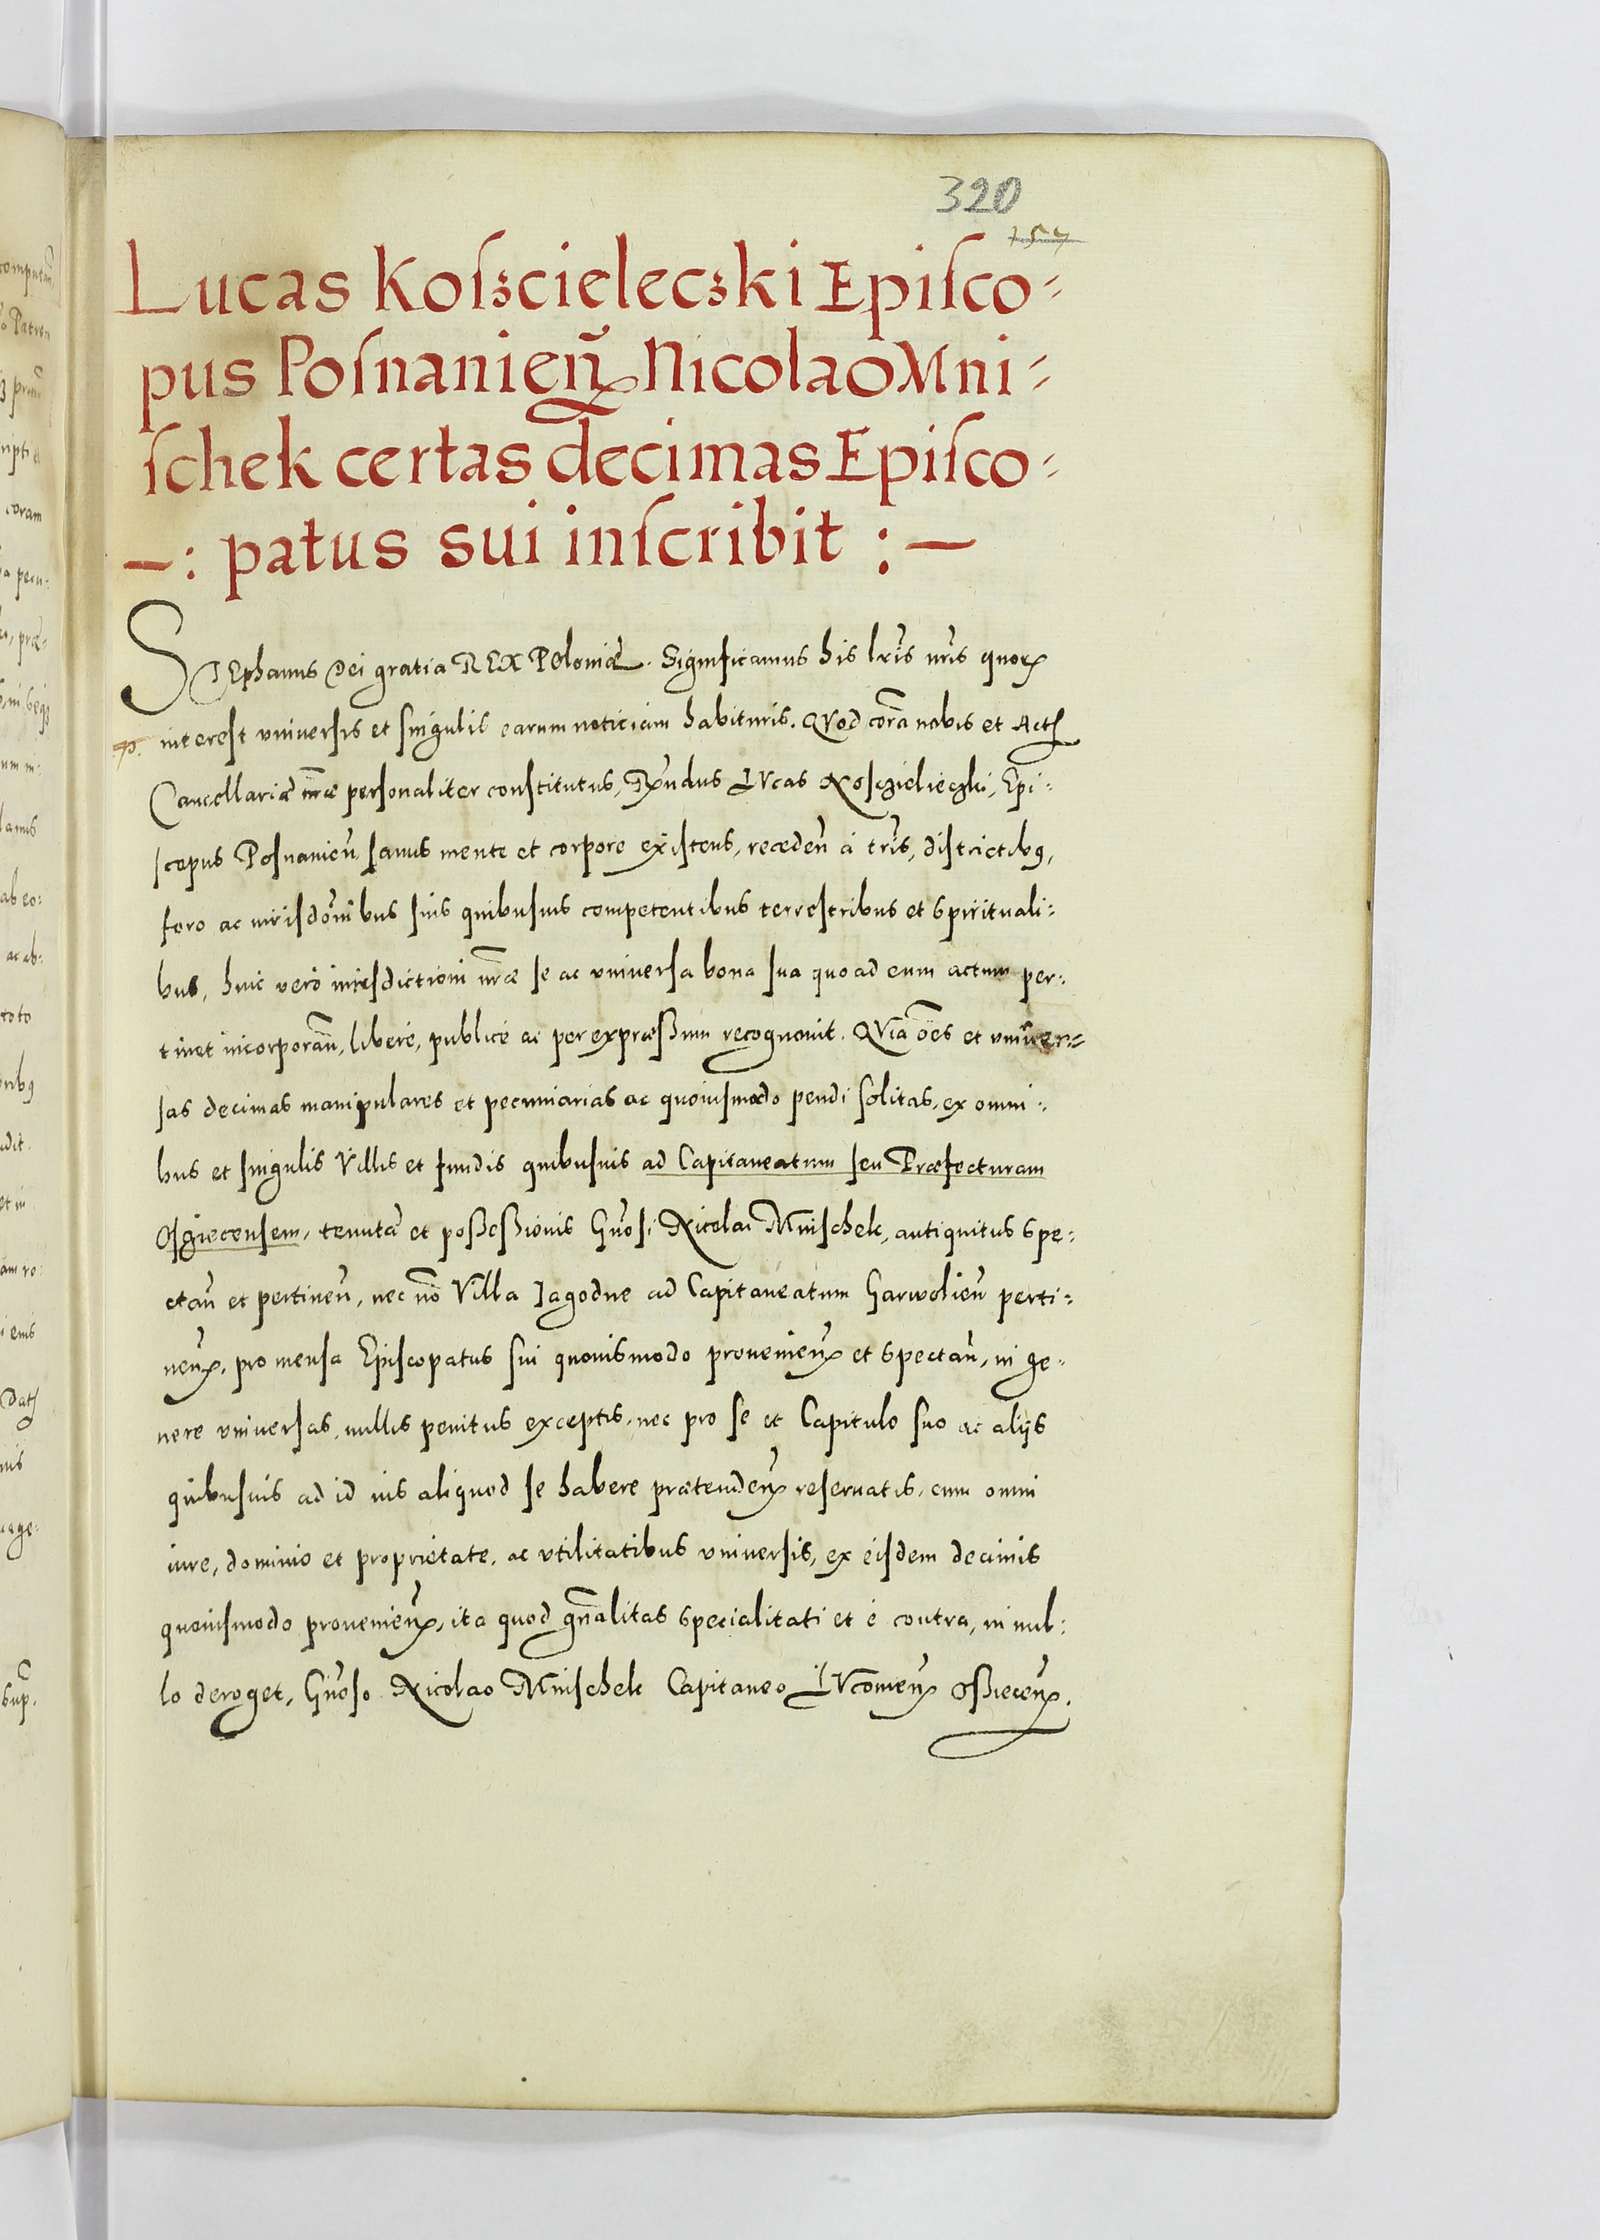 320
157
Lucas Koſzcieleczki Epiſco-
pus Poſnanien̄ Nicolao Mni-
ſchek certas decimas Epiſco-
-: patus sui inſcribit : —
STEphanus Dei gratia REX Poloniæ. Significamus his lr̃is nr̃is quorꝝ
interest vniuersis et singulis earum noticiam habituris. QVod corã nobis et Actis
Cancellariæ nr̃æ personaliter constitutus, Rñdus LVcas Kosczielieczki, Epi-
scopus Posnanien̄ sanus mente et corpore existens, receden̄ à tr̃is, districtibꝰ,
foro ac iurisdõnibus suis quibusuis competentibus terrestribus et spirituali-
bus, huic verò iurisdictioni nr̃æ se ac vniuersa bona sua quo ad eum actum per-
tinet incorporan̄, liberè, publicè ac per expræßum recognouit. QVia oẽs et vniuer-
sas decimas manipulares et pecuniarias ac quouismodo pendi solitas, ex omni-
bus et singulis Villis et fundis quibusuis ad Capitaneatum seu Præfecturam
Osgiecensem, tenutæ et poßeßionis Gñosi Nicolai Mnischek, antiquitus spe-
ctan̄ et pertinen̄, nec nõ Villa Jagodne ad Capitaneatum Garwolien̄ perti-
nen̄, pro mensa Episcopatus sui quouismodo prouenien̄ et spectan̄, in ge-
nere vniuersas, nullis penitus exceptis, nec pro se et Capitulo suo ac alijs
quibusuis ad id ius aliquod se habere prætenden̄ reseruatis, cum omni
iure, dominio et proprietate, ac vtilitatibus vniuersis, ex eisdem decimis
quouismodo prouenien̄, ita quod gñalitas specialitati et è contra, in nul-
lo deroget, Gñoso Nicolao Mnischek Capitaneo LVcouien̄ Oßiecen̄.